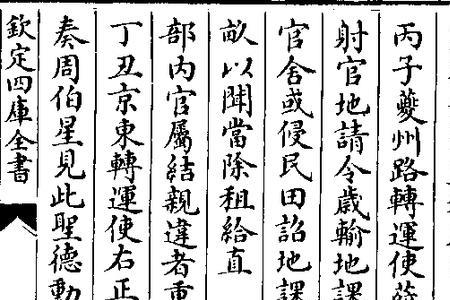 丙子夔州路轉運使薛
射官地請令歲輸地課
官舍或侵民田詔地課
畝以聞當除租給直
部内官屬結親違者重
丁丑京東轉運使右正
奏周伯星見此聖德動
欽定四庫全書